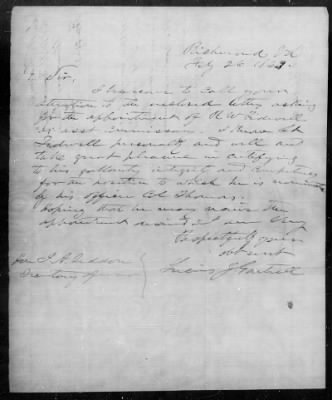 Richmond Va
Feby 26 1863.
Sir,
I beg leave to call your
attention to the enclosed letter asking
for the appointment of H W Tidwell
as asst Commissary. I know Lt
Tidwell personally and well and
take great pleasure in certifying
to his gallantry, integrity and competency
for the position to which he is
by his officer Col Thomas.
hoping that he may receive the
appointment I am Very
Respectfully yours
obt svt
Lucius J Gartrell
Hon J. A. Seddon
Secretary of War